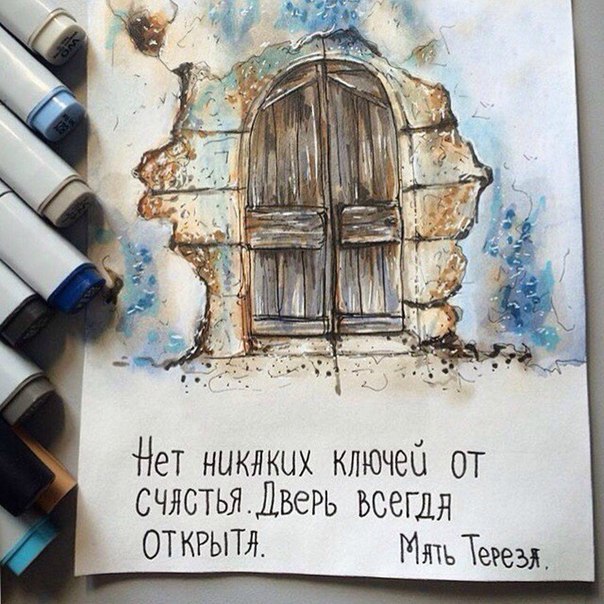 Нет никаких ключей от
счастья. Дверь всегда
открыта.
Мать Тереза.